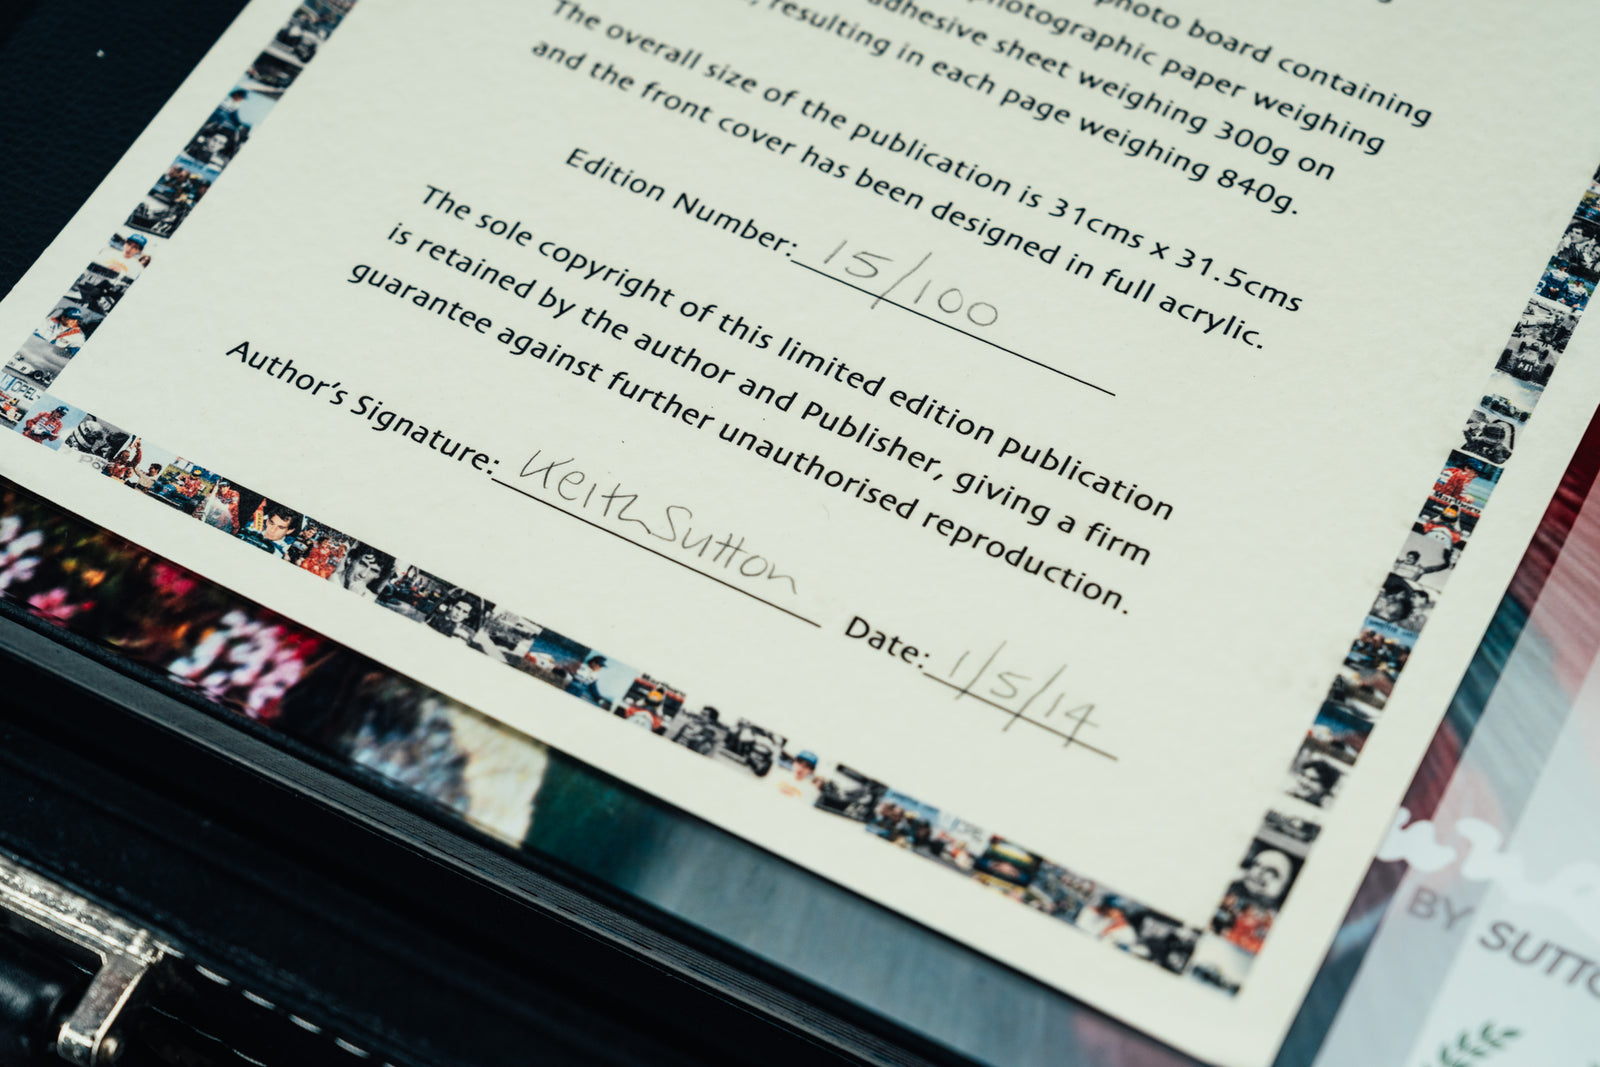 photo board containing
photographic paper weighing
adhesive sheet weighing 300g on
resulting in each page weighing 840g.
The overall size of the publication is 31cms x 31.5cms
and the front cover has been designed in full acrylic.
Edition Number: 15/100
The sole copyright of this limited edition publication
is retained by the author and Publisher, giving a firm
guarantee against further unauthorised reproduction.
Author's Signature: Keith Sutton Date: 1/5/14
OPEL
BY SUTTO